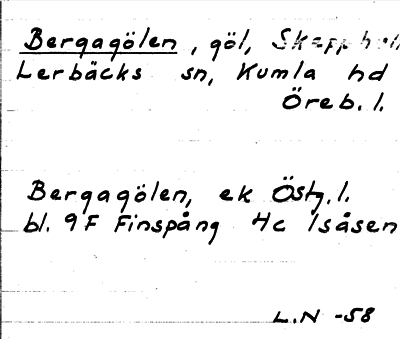 Bergagölen, göl,
Lerbäcks sn, Kumla hd
Öreb. l.
Bergagölen, ek Östg. l.
bl. 9F Finspång Hc Isåsen
L.N -58